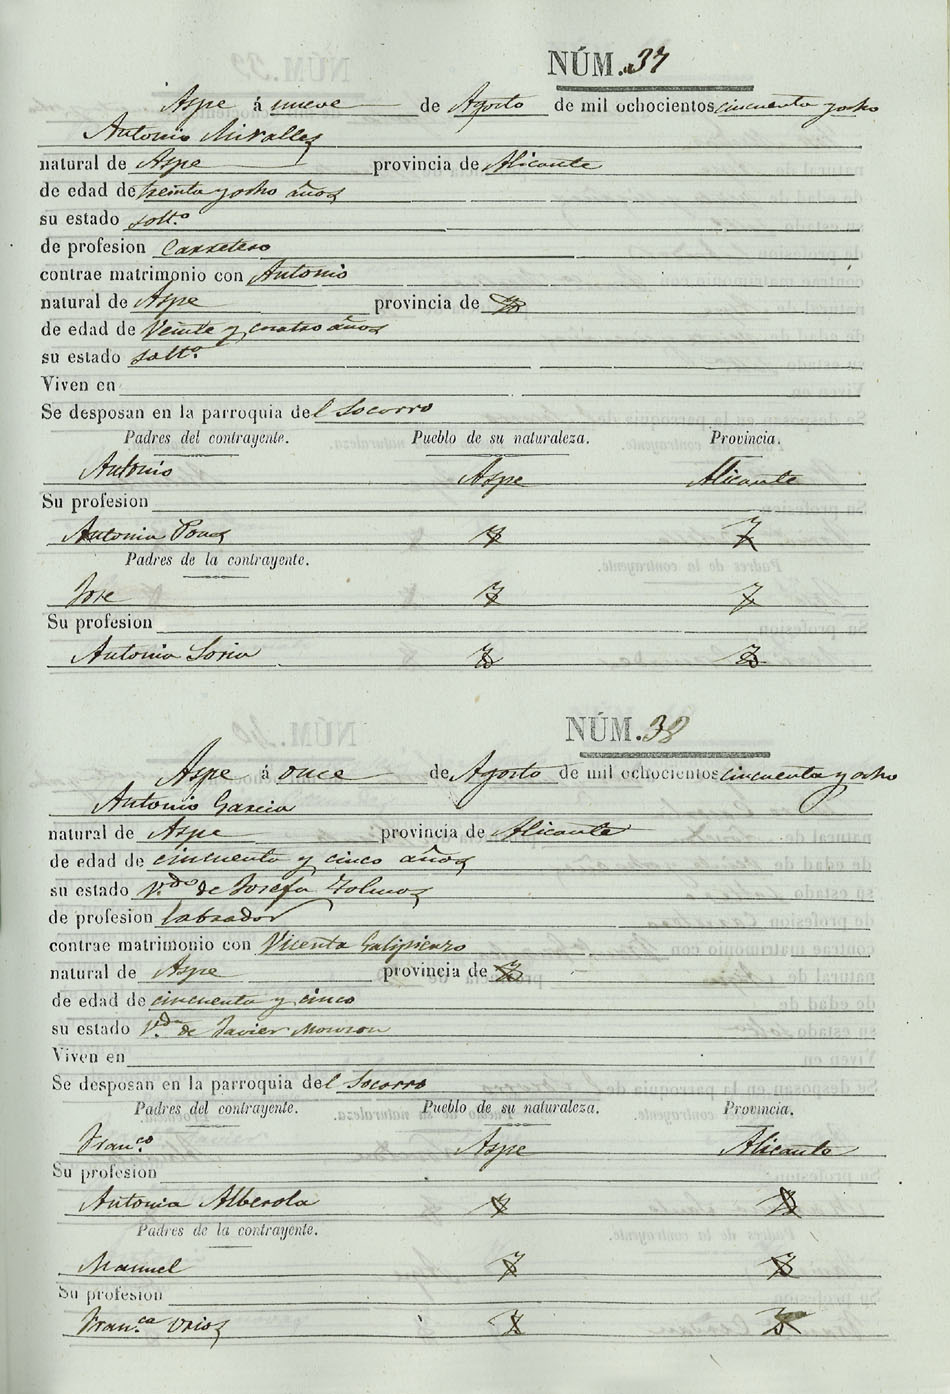 NÚM. 37
Aspe á nueve de Agosto de mil ochocientos cincuenta y ocho
Antonio Miralles
natural de Aspe provincia de Alicante
de edad de treinta y ocho años
su estado solt.º
de profesion Carretero
contrae matrimonio con Antonia
natural de Aspe provincia de
de edad de Veinte y cuatro años
su estado solt.ª
Viven en
Se desposan en la parroquia del Socorro
Padres del contrayente. Pueblo de su naturaleza. Provincia.
Antonio Aspe Alicante
Su profesion
Antonia Pons
Padres de la contrayente.
Jose
Su profesion
Antonia Soria
NÚM. 38
Aspe á once de Agosto de mil ochocientos cincuenta y ocho
Antonio Garcia
natural de Aspe provincia de Alicante
de edad de cincuenta y cinco años
su estado V.do de Josefa
de profesion labrador
contrae matrimonio con Vicenta Galipienzo
natural de Aspe provincia de
de edad de cincuenta y cinco
su estado V.da de Javier
Viven en
Se desposan en la parroquia del Socorro
Padres del contrayente. Pueblo de su naturaleza. Provincia.
Fran.co Aspe Alicante
Su profesion
Antonia Alberola
Padres de la contrayente.
Manuel
Su profesion
Fran.ca Urios